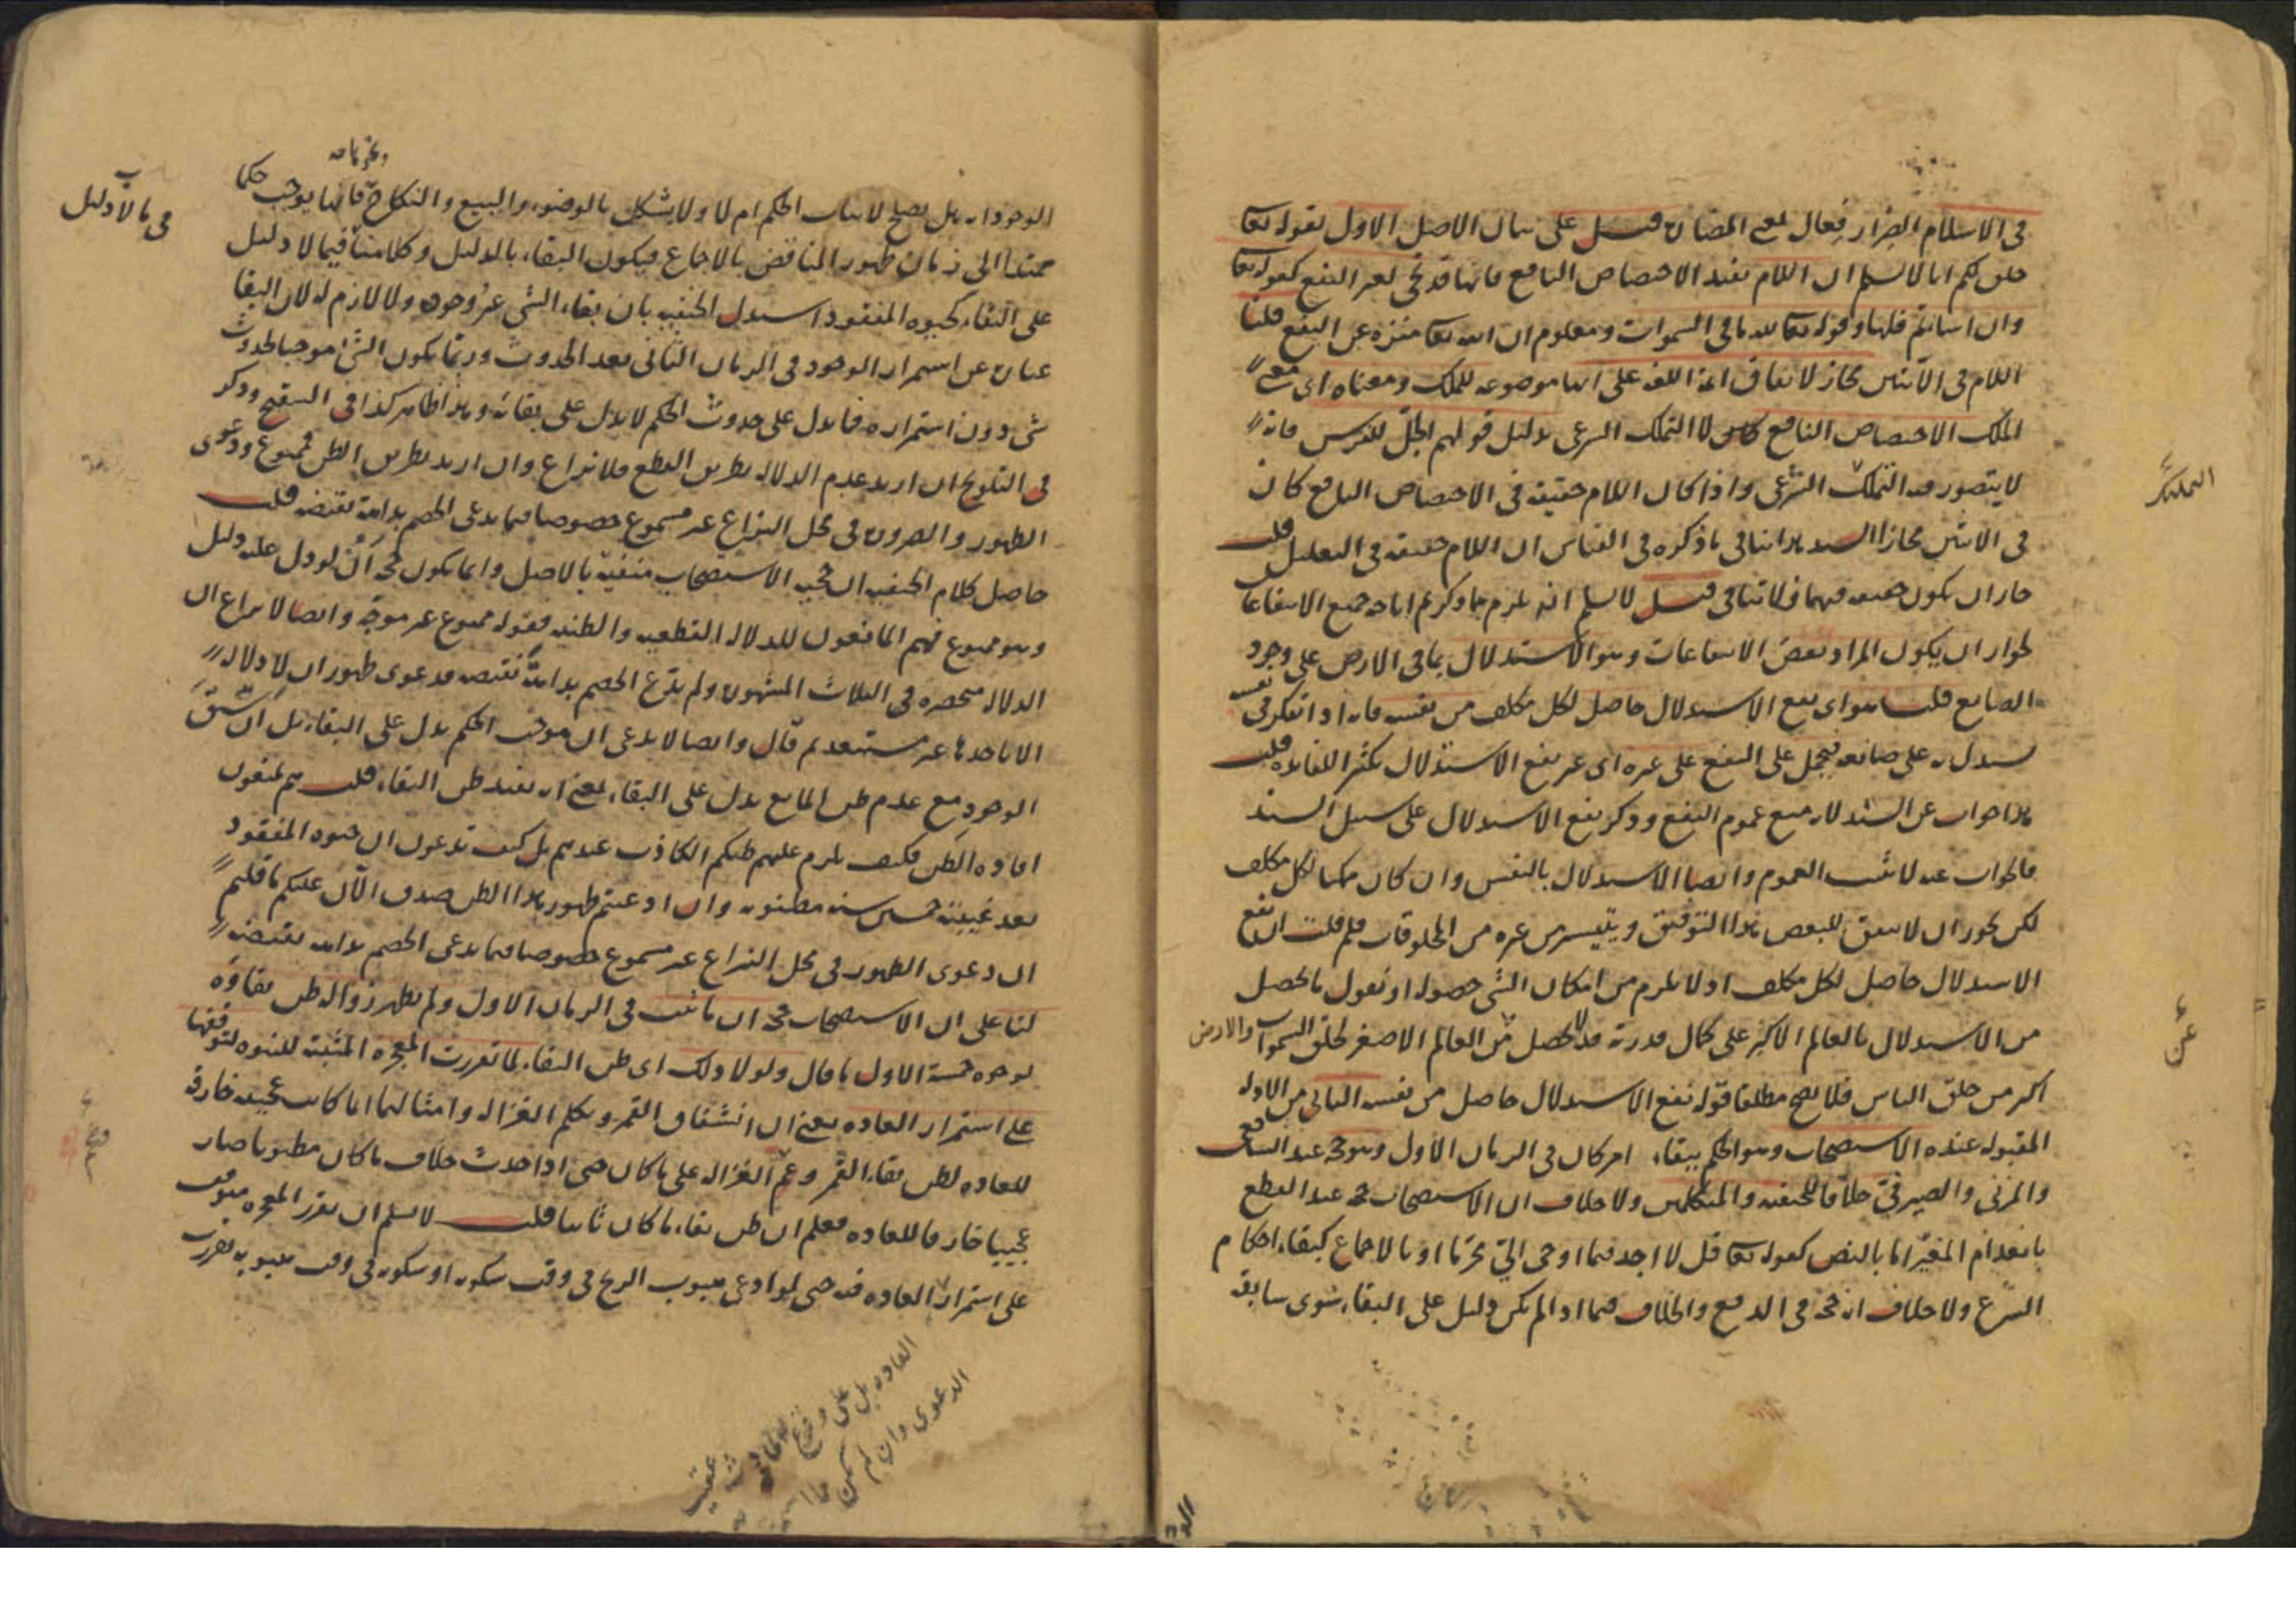 في الاسلام الضرار فعال بمعنى المضارة قيل على بيان الاصل الاول بقوله تعا
خلق لكم انا لا نسلم ان اللام تفيد الاختصاص النافع فانها قد تجئ لغير النفع كقوله تعا
وان اساتم فلها وقوله تعا لله ما في السموات ومعلوم ان الله تعا منزه عن النفع قلنا
اللام في الآيتين مجاز لاتفاق ائمة اللغة على انها موضوعة للملك ومعناه اي معنى
الملك الاختصاص النافع لا التملك الشرعي بدليل قولهم الجل للفرس فانه
لا يتصور منه التملك الشرعي واذا كان اللام حقيقة في الاختصاص النافع كان
في الاثنين مجازا السيد هذا ينافي ما ذكره في القياس ان اللام حقيقة في التعليل قلت
جاز ان يكون حقيقة فيهما فلا تنافي قيل لا نسلم انه يلزم مما ذكرتم اباحة جميع الانتفاعات
لجواز ان يكون المراد بعض الانتفاعات وهو الاستدلال بما في الارض على وجود
الصانع قلت هو اي نفع الاستدلال حاصل لكل مكلف من نفسه فانه اذا تفكر في نفسه
يستدل به على صانعه فيحمل على النفع على غيره اي غير نفع الاستدلال تكثيرا للفائدة قلت
هذا جواب عن السند لانه منع عموم النفع وذكر نفع الاستدلال على سبيل السند
فالجواب عنه لا يثبت العموم وايضا الاستدلال بالنفس وان كان ممكنا لكل مكلف
لكن يجوز ان لا يتفق للبعض هذا التوفيق ويتيسر من غيره من المخلوقات فلم قلت ان نفع
الاستدلال حاصل لكل مكلف اذ لا يلزم من امكان الشئ حصوله او نقول ما يحصل
من الاستدلال بالعالم الاكبر على كمال قدرته قد لا يحصل من العالم الاصغر لخلق السموات والارض
اكبر من خلق الناس فلا يصح مطلقا قوله نفع الاستدلال حاصل من نفسه الثاني من الادلة
المقبولة عنده الاستصحاب وهو الحكم ببقاء امر كان في الزمان الاول وهو حجة عند الشافعي
والمزني والصيرفي خلافا للحنفية والمتكلمين ولا خلاف ان الاستصحاب حجة عند القطع
بانعدام المغير اما بالنص كقوله تعا قل لا اجد فيما اوحي الي محرما او بالاجماع كبقاء احكام
الشرع ولا خلاف انه حجة في الدفع والخلاف فيما اذا لم يكن دليل على البقاء سوى سابقة
عن
الوجود انه هل يصلح لاثبات الحكم ام لا ولا يشكل بالوضوء والبيع والنكاح فانها يوجب حكما
ونحوها
ممتدا الى زمان ظهور المناقض بالاجماع فيكون البقاء بالدليل وكلامنا فيما لا دليل
في ما لا دليل
على البقاء كحيوة المفقود استدل الحنفية بان بقاء الشئ غير وجوده ولا لازم له لان البقا
عبارة عن استمرار الوجود في الزمان الثاني بعد الحدوث وربما يكون الشئ موجبا لحدوث
شئ دون استمراره فما دل على حدوث الحكم لا يدل على بقائه وهذا ظاهر كذا في التنقيح وذكر
في التلويح ان اريد عدم الدلالة بطريق القطع فلا نزاع وان اريد بطريق الظن فممنوع ودعوى
الظهور والضرورة في محل النزاع غير مسموع خصوصا فيما يدعى الخصم بداهة نقيضه قلت
حاصل كلام الحنفية ان حجية الاستصحاب منفية بالاصل وانما يكون حجة ان لو دل عليه دليل
وهو ممنوع فهم المانعون للدلالة القطعية والظنية فقوله ممنوع غير موجه وايضا لا نزاع ان
الدلالة منحصرة في الثلاث المشهورة ولم يدع الخصم بداهة نقيضه فدعوى ظهور ان لا دلالة
الا باحدها غير مستبعد ثم قال وايضا لا يدعى ان موجب الحكم يدل على البقاء بل ان سبق
الوجود مع عدم ظن المانع يدل على البقاء بمعنى انه يفيد ظن البقاء قلت هم يمنعون
افادة الظن فكيف يلزم عليهم ظنكم الكاذب عندهم بل كيف تدعون ان حيوة المفقود
بعد غيبته خمسين سنة مظنونة وان ادعيتم ظهور هذا الظن صدق الآن عليكم ما قلتم
ان دعوى الظهور في محل النزاع غير مسموع خصوصا فيما يدعى الخصم بداهة نقيضه
لنا على ان الاستصحاب حجة ان ما ثبت في الزمان الاول ولم يظهر زواله ظن بقاؤه
لوجوه خمسة الاول ما قال ولولا ذلك اي ظن البقاء لما تقررت المعجزة المثبتة للنبوة لتوقفها
على استمرار العادة يعني ان انشقاق القمر وتكلم الغزالة وامثالهما انما كانت عجيبة خارقة
للعادة لظن بقاء القمر وعجم الغزالة على ما كان حتى اذا حدث خلاف ما كان مظنونا صار
عجيبا خارقا للعادة فعلم ان ظن بقاء ما كان ثابتا قلت لا نسلم ان تقرر المعجزة متوقف
على استمرار العادة فيه حتى لو ادعى هبوب الريح في وقت سكونه او سكونه في وقت هبوبه تقررت
الدعوى وان لم يكن
العادة بل على وقوع عقيب